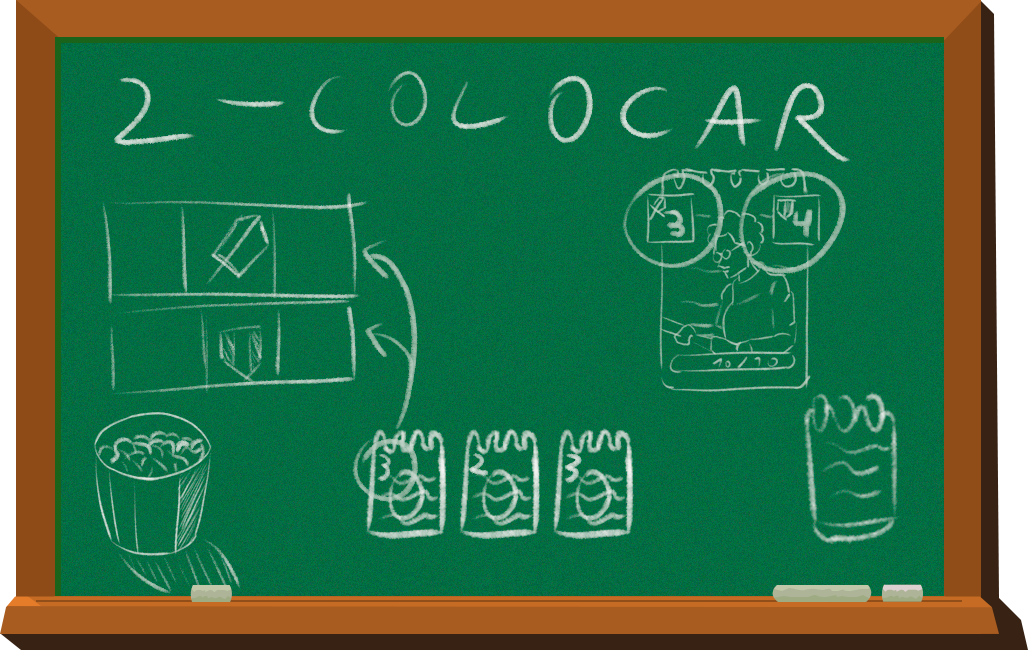 2 - COLOCAR
3 4
10/10
3 2 3